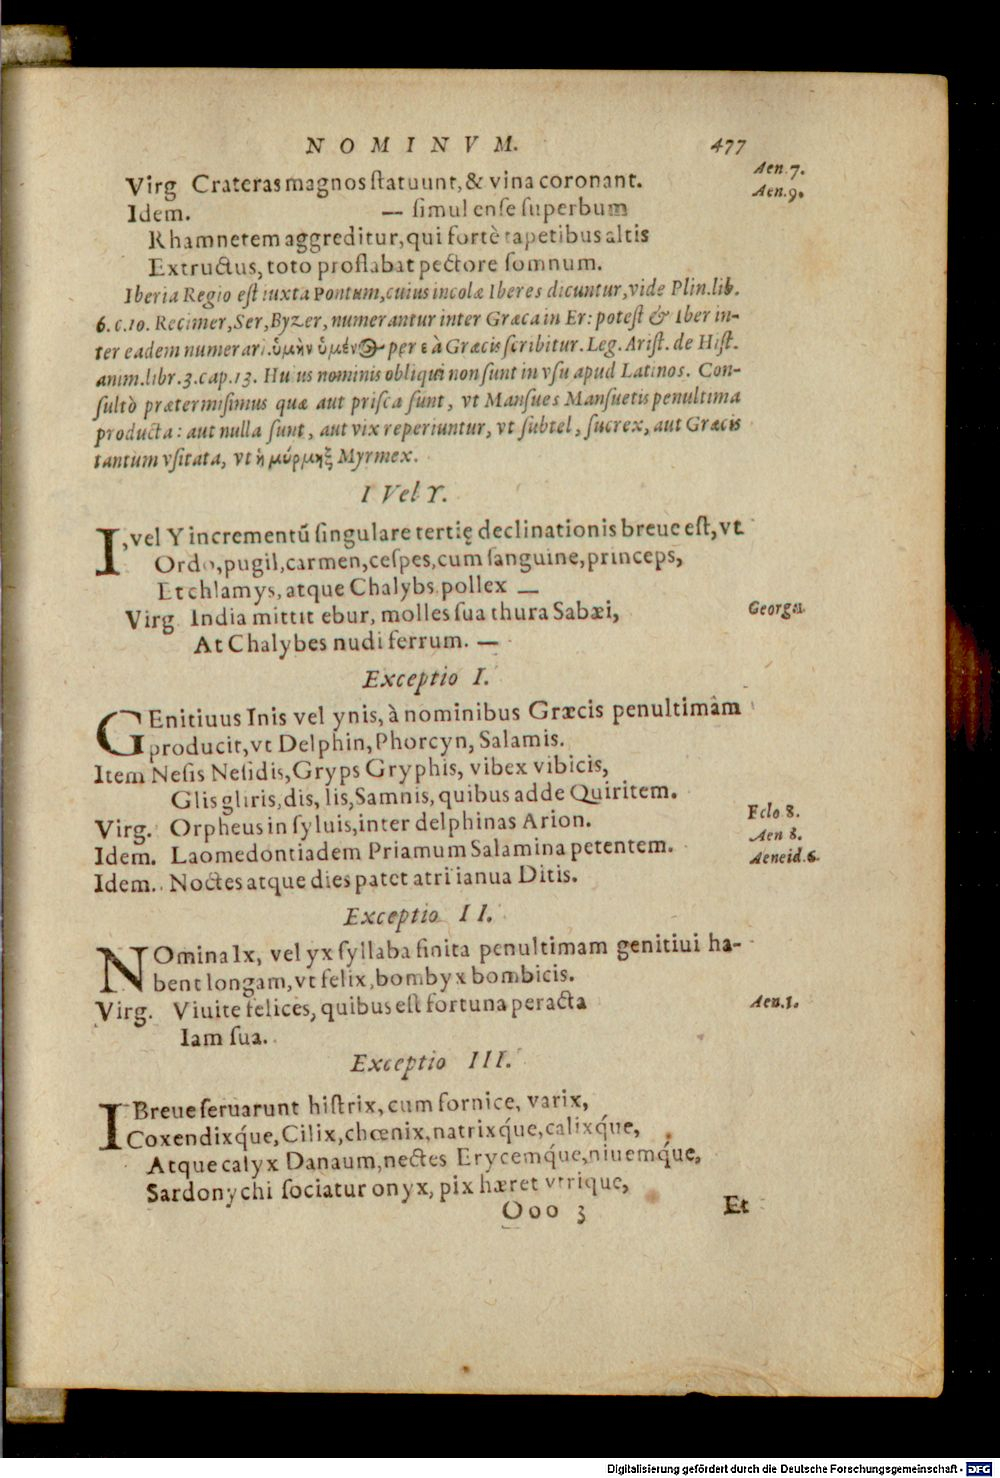 NOMINVM. 477
Virg Crateras magnos ſtatuunt, & vina coronant. Aen. 7.
Idem. — ſimul enſe ſuperbum Aen. 9.
Rhamnetem aggreditur, qui fortè tapetibus altis
Extructus, toto proflabat pectore ſomnum.
Iberia Regio eſt iuxta Pontum, cuius incolæ Iberes dicuntur, vide Plin. lib.
6. c. 10. Recimer, Ser, Byzer, numerantur inter Græca in Er: poteſt & Iber in-
ter eadem numerari. ὑμὴν ὑμένος per ε à Græcis ſcribitur. Leg. Ariſt. de Hiſt.
anim. libr. 3. cap. 13. Huius nominis obliqui non ſunt in vſu apud Latinos. Con-
ſultò prætermiſimus quæ aut priſca ſunt, vt Manſues Manſuetis penultima
producta: aut nulla ſunt, aut vix reperiuntur, vt ſubtel, ſucrex, aut Græcis
tantum vſitata, vt ἡ μύρμηξ Myrmex.
I Vel Y.
I, vel Y incrementū ſingulare tertię declinationis breue eſt, vt
Ordo, pugil, carmen, ceſpes, cum ſanguine, princeps,
Et chlamys, atque Chalybs pollex —
Virg India mittit ebur, molles ſua thura Sabæi,
At Chalybes nudi ferrum. —
Exceptio I.
GEnitiuus Inis vel ynis, à nominibus Græcis penultimam
producit, vt Delphin, Phorcyn, Salamis.
Item Neſis Neſidis, Gryps Gryphis, vibex vibicis,
Glis gliris, dis, lis, Samnis, quibus adde Quiritem.
Virg. Orpheus in ſyluis, inter delphinas Arion. Eclo 8.
Idem. Laomedontiadem Priamum Salamina petentem. Aen 8.
Idem. Noctes atque dies patet atri ianua Ditis. Aeneid. 6.
Exceptio II.
NOmina Ix, vel yx ſyllaba finita penultimam genitiui ha-
bent longam, vt felix, bombyx bombicis.
Virg. Viuite felices, quibus eſt fortuna peracta Aen. 3.
Iam ſua.
Exceptio III.
I Breue ſeruarunt hiſtrix, cum fornice, varix,
Coxendixq́ue, Cilix, chœnix, natrixq́ue, calixq́ue,
Atque calyx Danaum, nectes Erycemq́ue, niuemq́ue,
Sardonychi ſociatur onyx, pix hæret vtrique,
Ooo 3 Et
Digitalisierung gefördert durch die Deutsche Forschungsgemeinschaft - DFG